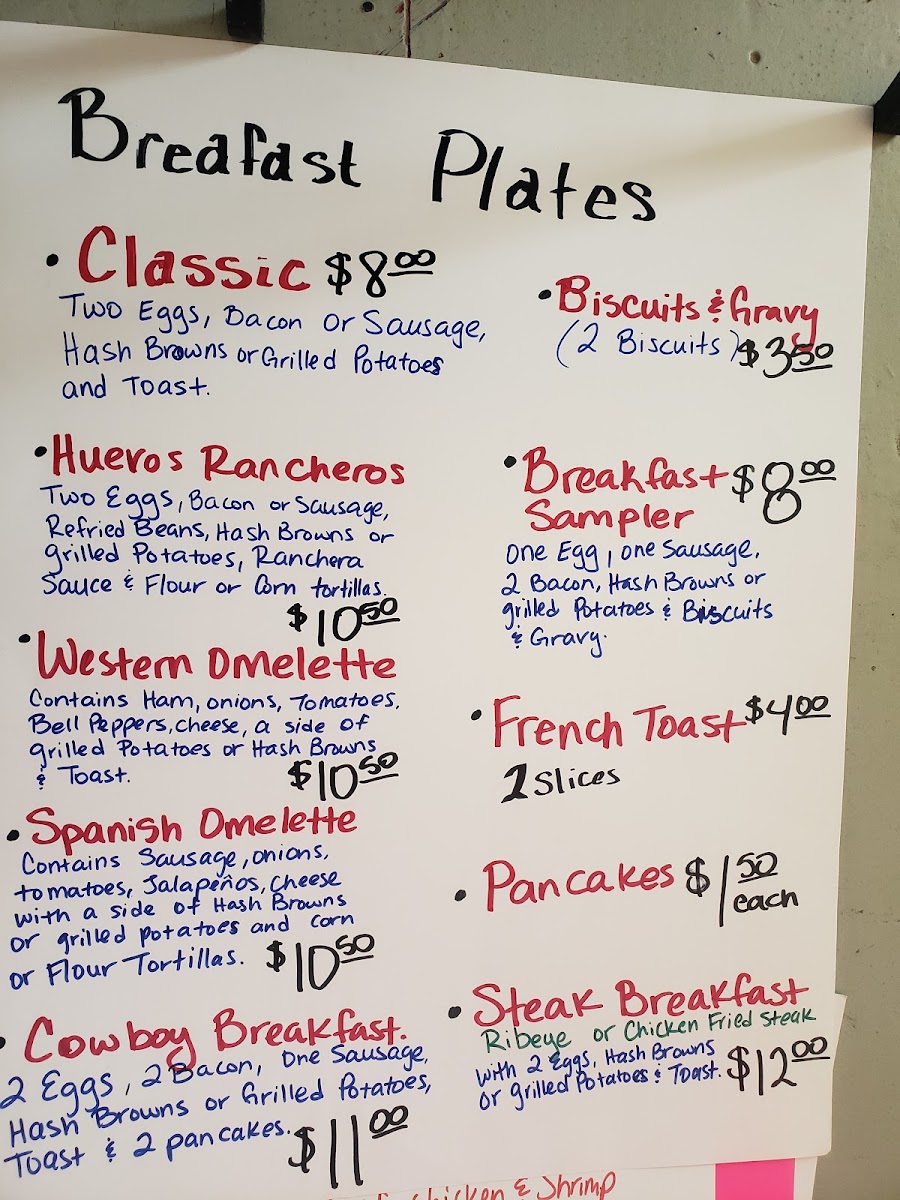 Breafast Plates
• Classic $8.00
Two Eggs, Bacon or Sausage,
Hash Browns or Grilled Potatoes
and Toast.
• Hueros Rancheros
Two Eggs, Bacon or Sausage,
Refried Beans, Hash Browns or
grilled Potatoes, Ranchera
Sauce & Flour or Corn tortillas.
$10.50
• Western Omelette
Contains Ham, onions, Tomatoes,
Bell Peppers, cheese, a side of
grilled Potatoes or Hash Browns
& Toast. $10.50
• Spanish Omelette
Contains Sausage, onions,
tomatoes, Jalapeños, cheese
with a side of Hash Browns
or grilled potatoes and corn
or Flour Tortillas. $10.50
• Cowboy Breakfast.
2 Eggs, 2 Bacon, One Sausage,
Hash Browns or Grilled Potatoes,
Toast & 2 pancakes. $11.00
• Biscuits & Gravy
(2 Biscuits) $3.50
• Breakfast $8.00
Sampler
One Egg, one Sausage,
2 Bacon, Hash Browns or
grilled Potatoes & Biscuits
& Gravy.
• French Toast $4.00
2 Slices
• Pancakes $1.50
each
• Steak Breakfast
Ribeye or Chicken Fried Steak
with 2 Eggs, Hash Browns
or grilled Potatoes & Toast. $12.00
chicken & Shrimp